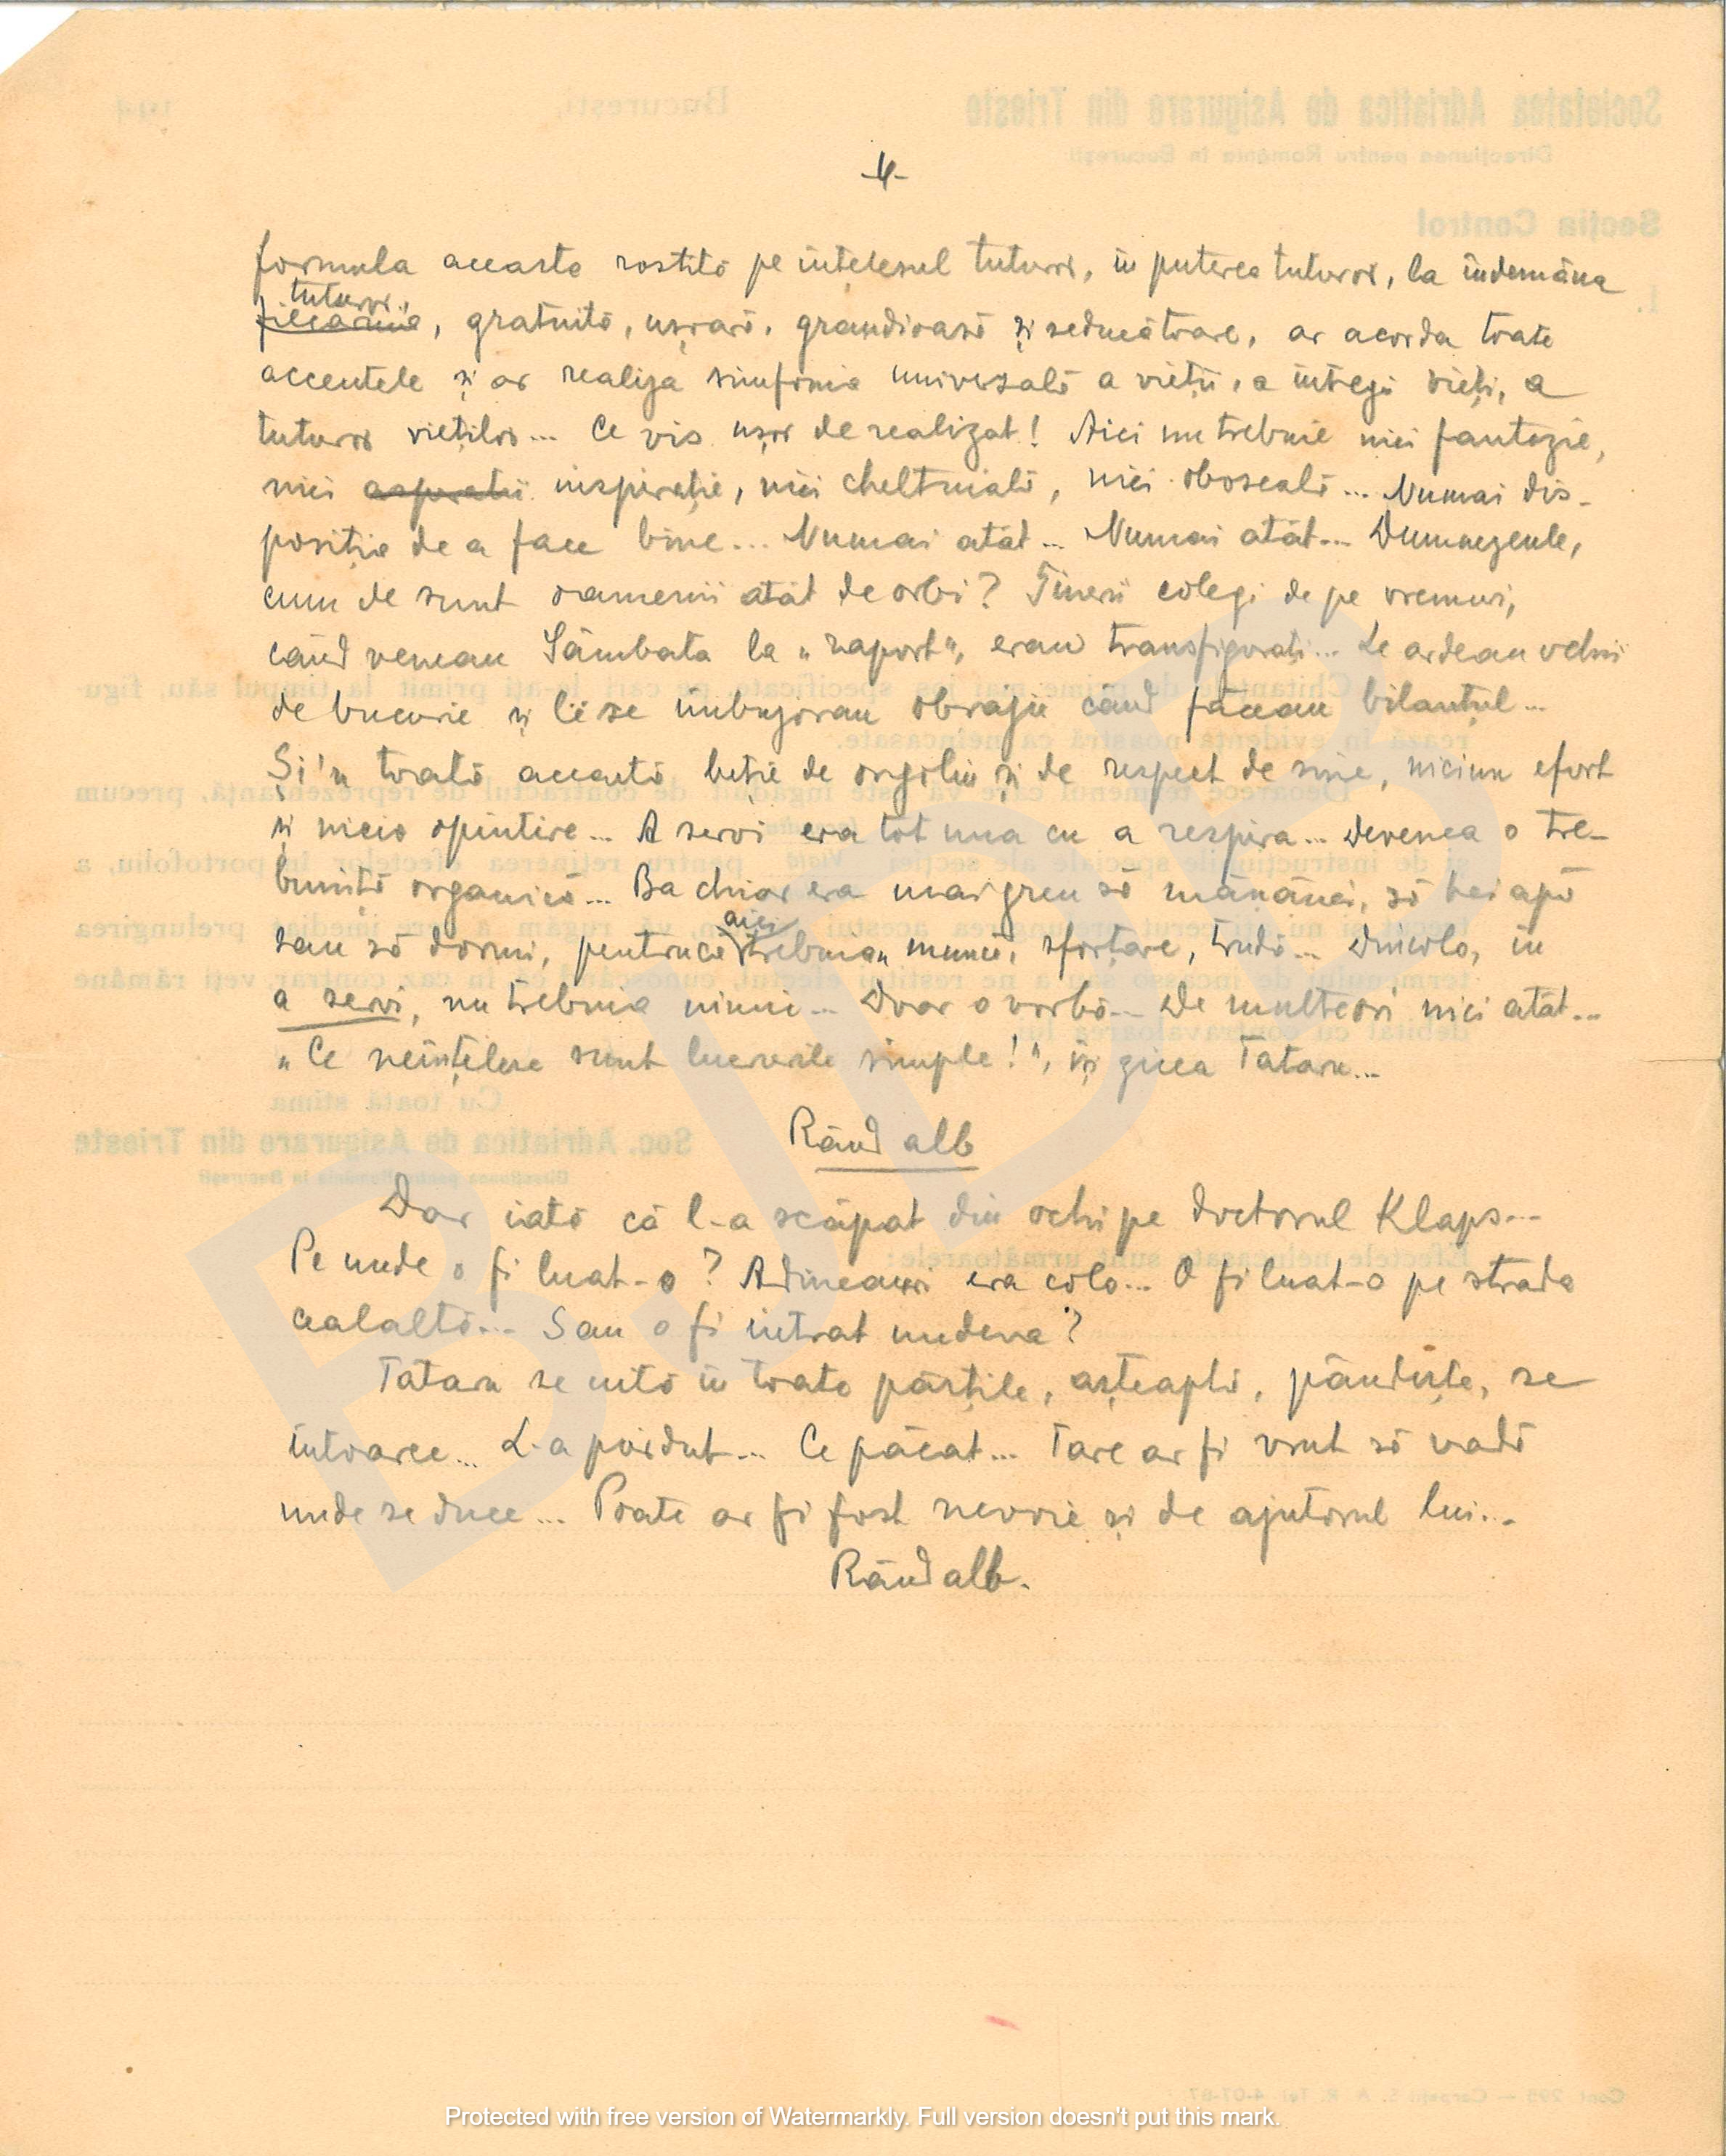 -4-
formula aceasta rostită pe înțelesul tuturor, în puterea tuturor, la îndemâna
tuturor,
fiecăruia, gratuită, ușoară, grandioasă și seducătoare, ar acorda toate
accentele și ar realiza simfonia universală a vieții, a întregii vieți, a
tuturor vieților... Ce vis ușor de realizat! Aici nu trebuie nici fantezie,
nici inspirație, nici cheltuială, nici oboseală... Numai dis-
poziția de a face bine... Numai atât... Numai atât... Dumnezeule,
cum de sunt oamenii atât de orbi? Tinerii colegi de pe vremuri,
când veneau Sâmbăta la „raport", erau transfigurați... Le ardeau ochii
de bucurie și li se îmbujorau obrajii când făceau bilanțul...
Și'n toată această beție de orgoliu și de respect de sine, niciun efort
și nicio opintire... A servi era tot una cu a respira... Devenea o tre-
buință organică... Ba chiar era mai greu să mănânci, să bei apă
aici
sau să dormi, pentrucă trebuia muncă, sforțare, trudă... Dincolo, în
a servi, nu trebuia nimic... Doar o vorbă... De multeori nici atât...
„Ce neînțelese sunt lucrurile simple!", își zicea Tataru...
Rând alb
Dar iată că l-a scăpat din ochi pe doctorul Klaps...
Pe unde o fi luat-o? Adineauri era colo... O fi luat-o pe strada
cealaltă... Sau o fi intrat undeva?
Tataru se uită în toate părțile, așteaptă, pândește, se
întoarce... L-a pierdut... Ce păcat... Tare ar fi vrut să vadă
unde se duce... Poate ar fi fost nevoie și de ajutorul lui...
Rând alb.
Societatea Adriatica de Asigurare din Trieste
Direcțiunea pentru România în București
București,
194
Secția Control
Cu toată stima
Soc. Adriatica de Asigurare din Trieste
Direcțiunea pentru România în București
Efectele neîncasate sunt următoarele:
Protected with free version of Watermarkly. Full version doesn't put this mark.